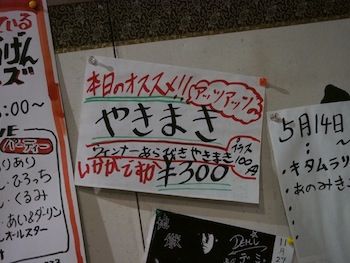 本日のオススメ!!
アッツアツ!
やきまき
ウィンナーあらびきやきまき
プラス
100円
いかがですか
¥300
ている
げん
ズ
:00〜
パーティー
ありあり
ひろっち
くるみ
あい&ダーリン
オールスター
5月14日〜
・キタムラリ
・あのみき